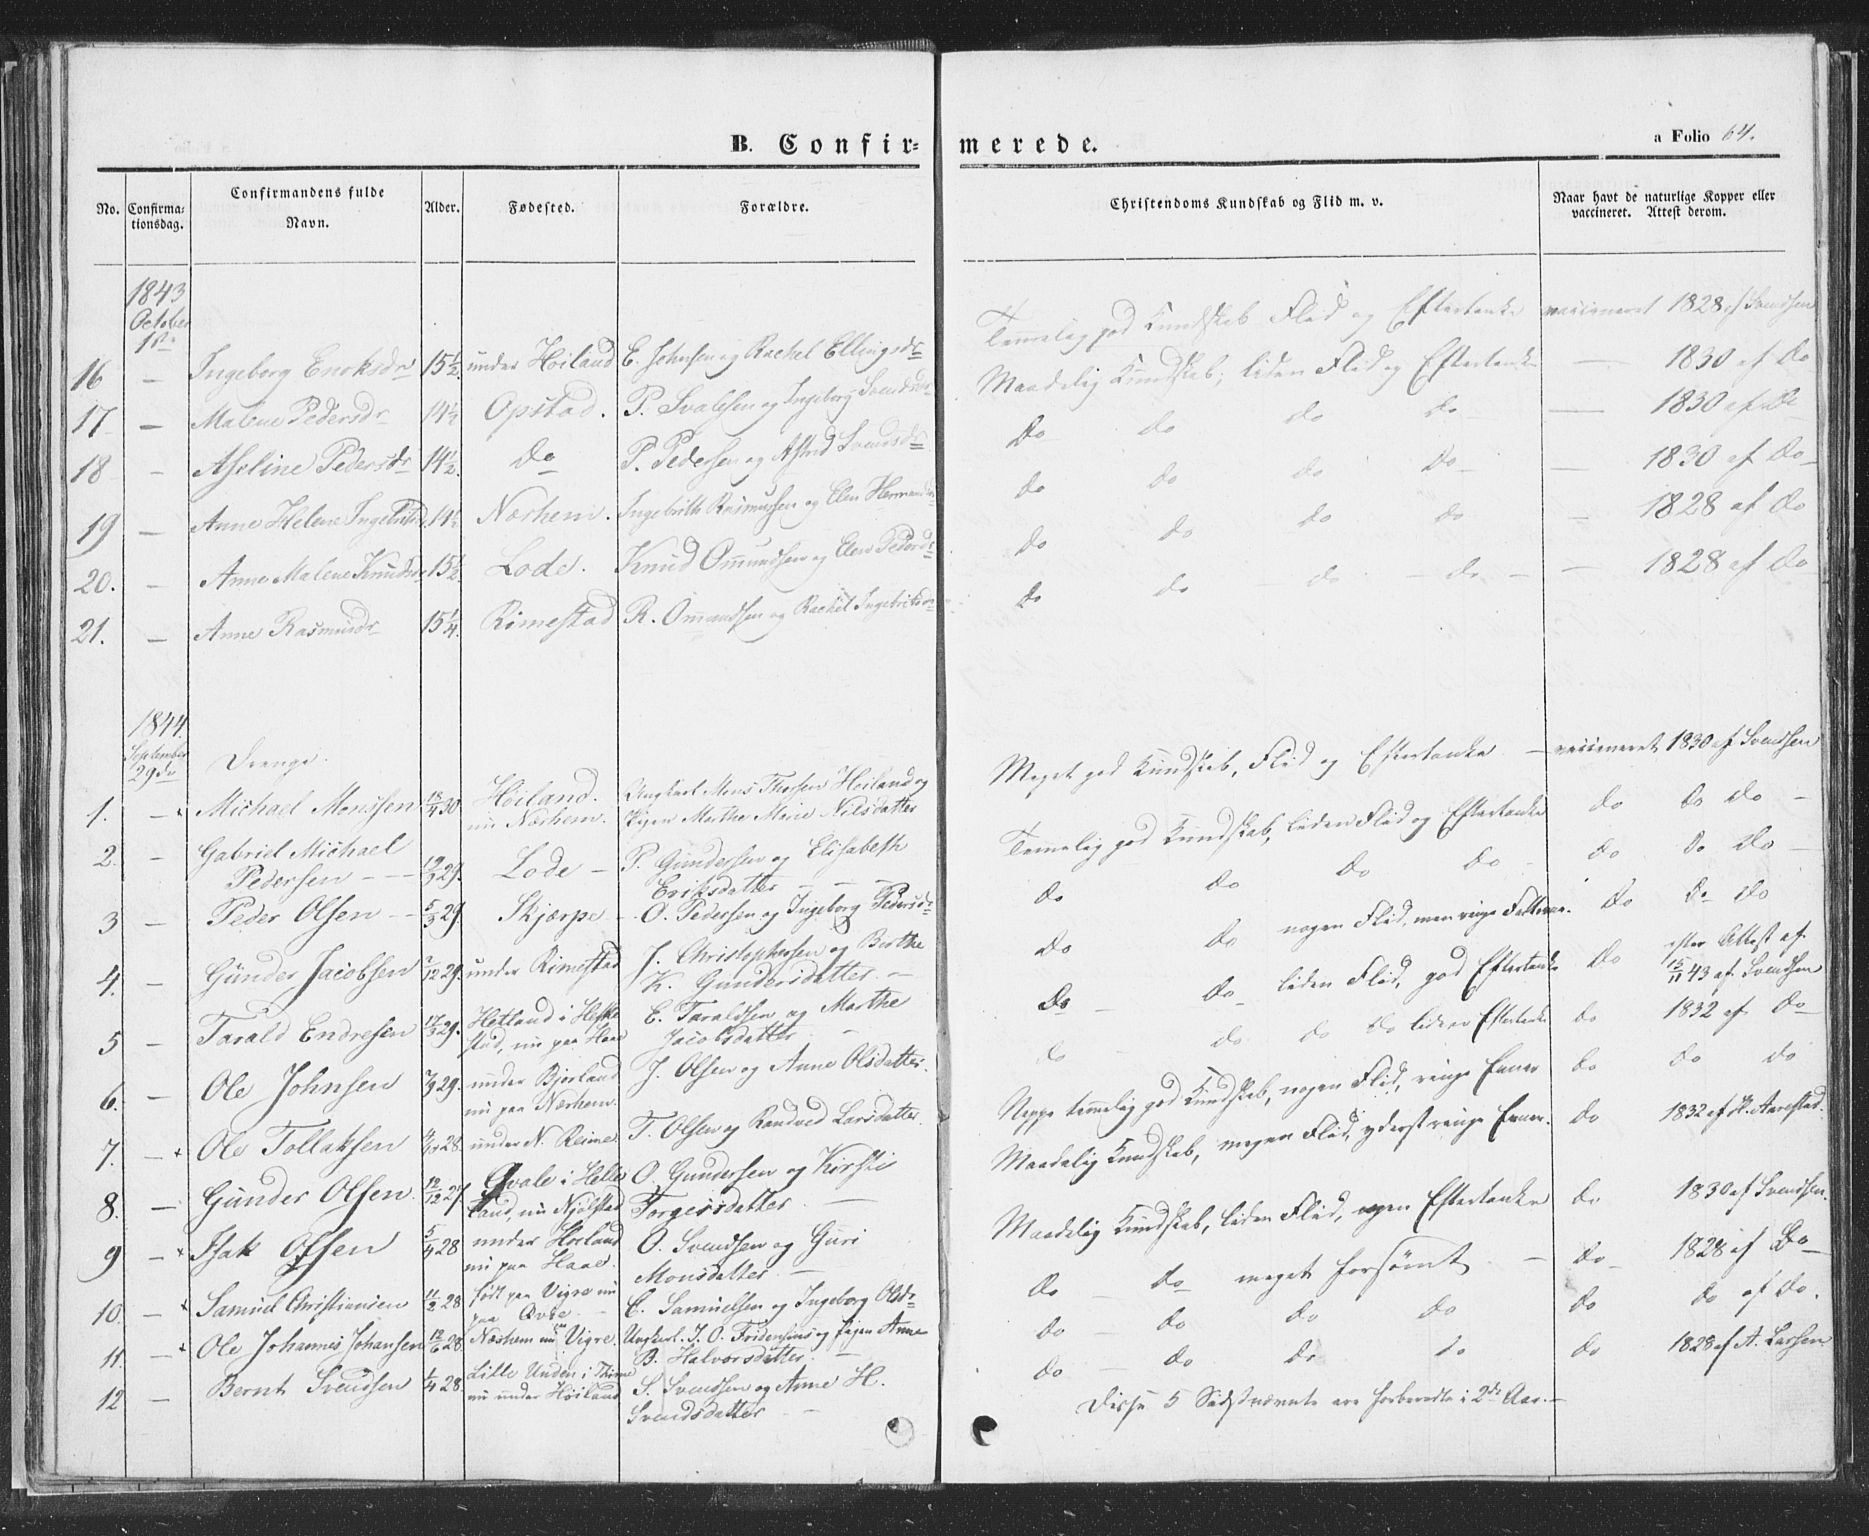 B. Confir= merede.
a Folio 64.
No. Confirma= tionsdag. Confirmandens fulde Navn. Alder. Fødested. Forældre. Christendoms Kundskab og Flid m. v. Naar havt de naturlige Kopper eller vaccineret. Attest derom.
1843
October
1ste
16 — Ingeborg Enoksdr 15½ under Høiland E. Johnsen og Rachel Ellingsdr Temmelig god Kundskab Flid og Eftertanke vaccineret 1828 af Svendsen
17 — Malene Pedersdr 14½ Opstad. P. Svalesen og Ingeborg Svendsdr Maadelig Kundskab, liden Flid og Eftertanke — 1830 af Do
18 — Aseline Pedersdr 14½ Do P. Pedersen og Astrid Svendsdr Do do do do — 1830 af Do
19 — Anne Helene Ingebritsdr 14½ Nærhem. Ingebrith Rasmussen og Elen Hermansdr Do do do Do — 1830 af Do
20. — Anne Malene Knudsdr 15½ Lode. Knud Omundsen og Elen Pedersdr Do do do do — 1828 af Do
21. — Anne Rasmusdr 15¼ Rimestad R. Omundsen og Rachel Ingebritsdr Do do — do — do — — 1828 af Do
1844
September
29de
Drenge.
1. — Michael Monssen 18/4 30 Høiland. Ungkarl Mons Thorsen Høiland og Meget god Kundskab, Flid og Eftertanke — vaccineret 1830 af Svendsen
nu Nærhem. Pigen Marthe Marie Nilsdatter
2. — Gabriel Michael
Pedersen — — 19/3 29. Lode — P. Gundersen og Elisabeth Temelig god Kundskab, liden Flid og Eftertanke do do do —
Eriksdatter — —
3 — Peder Olsen — 5/3 29 Skjærpe — O. Pedersen og Ingeborg Pedersdr Do do Do do — do do Do —
4. — Gunder Jacobsen 29. under Rimestad J. Christophersen og Berthe Do do nogen Flid, men ringe do do do
K. Gundersdatter. —
5 — Tarald Endresen 29. Hetland i Heske E. Taraldsen og Marthe Do — do — liden Flid, god Eftertanke do efter Attest af
stad, nu paa Haar Jacobsdatter — 15/11 43 af Svendsen
6. — Ole Johnsen 29. under Bjorland J. Olsen og Anne Olsdatter. do — do do do liden Eftertanke do 1832 af Do
nu paa Nærhem.
7. — Ole Tollaksen 28 under N. Reime T. Olsen og Randved Larsdatter. Neppe temmelig god Kundskab, nogen Flid, ringe Evner do do do
8. — Gunder Olsen. 12/12 27 Qvale i Helle O. Gundersen og Kirsti Maadelig Kundskab, megen Flid, yderst ringe Evner. do 1832 af Aarestad.
land, nu Njølstad Torgersdatter —
9 — Isak Olsen 5/4 28 under Høiland O. Svendsen og Guri Maadelig Kundskab, liden Flid, ingen Eftertanke do 1830 af Svendsen.
nu paa Haar. Monsdatter —
10 — Samuel Christiansen 11/2 28 født paa Vigre nu C. Samuelsen og Ingeborg Olsdr. Do — do meget forsømt — do 1828 af Do
paa
11. — Ole Johannes Johansen 12/6 28 Nærhem nu Vigre. Ungkarl. J. O. og Pigen Anne do — do do do do do af do.
B. Halvorsdatter. —
12 — Bernt Svendsen 28 Lille Unden i Thime S. Svendsen og Anne H. do — do do do do 1828 af A. Larsen
nu under Høiland Svendsdatter —
Disse 5 Sidstnævnte ere forberedte i 2de Aar. —